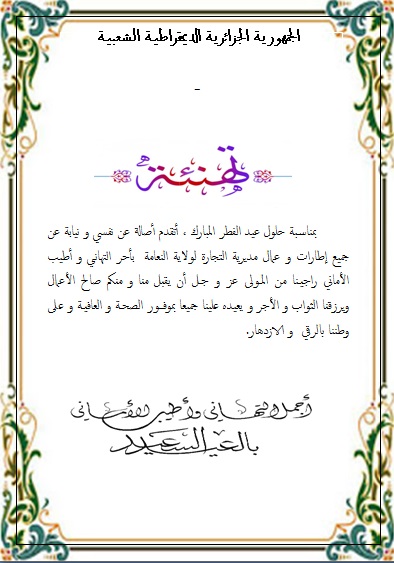 الجمهورية الجزائرية الديمقراطية الشعبية
-
تهنئة
بمناسبة حلول عيد الفطر المبارك ، أتقدم أصالة عن نفسي و نيابة عن
جميع إطارات و عمال مديرية التجارة لولاية النعامة بأحر التهاني و أطيب
الأماني راجينا من المولى عز و جل أن يقبل منا و منكم صالح الأعمال
ويرزقنا الثواب و الأجر و يعيده علينا جميعا بموفور الصحة و العافية و على
وطننا بالرقي و الازدهار.
أجمل التهاني وأطيب الأماني
بالعيد السعيد